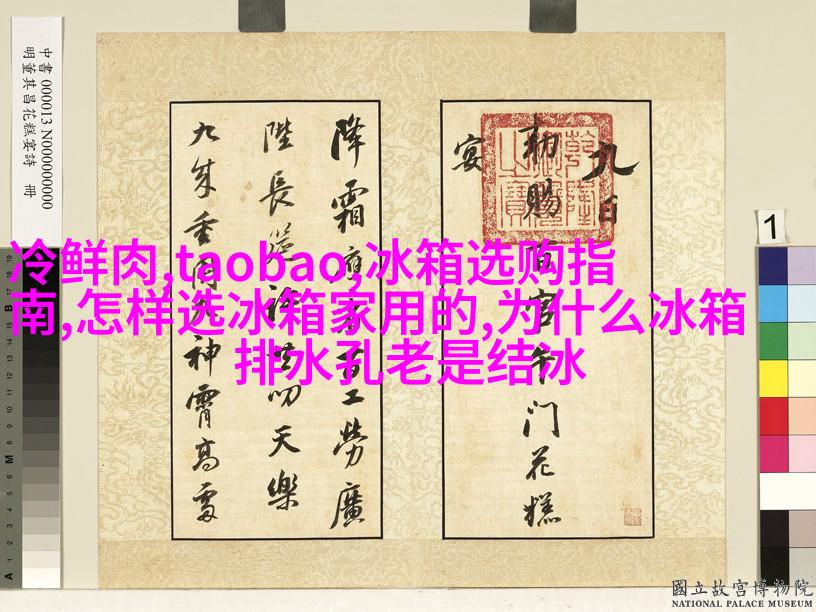 中書 000013 N000000000
明董其昌花糕宴詩 冊
九日
勅賜百官午門花糕
宴
降霜 工勞廣
陛長筵 叨天樂
九成重 神霄高
冷鲜肉,taobao,冰箱选购指
南,怎样选冰箱家用的,为什么冰箱
排水孔老是结冰
1
國立故宮博物院
NATIONAL PALACE MUSEUM